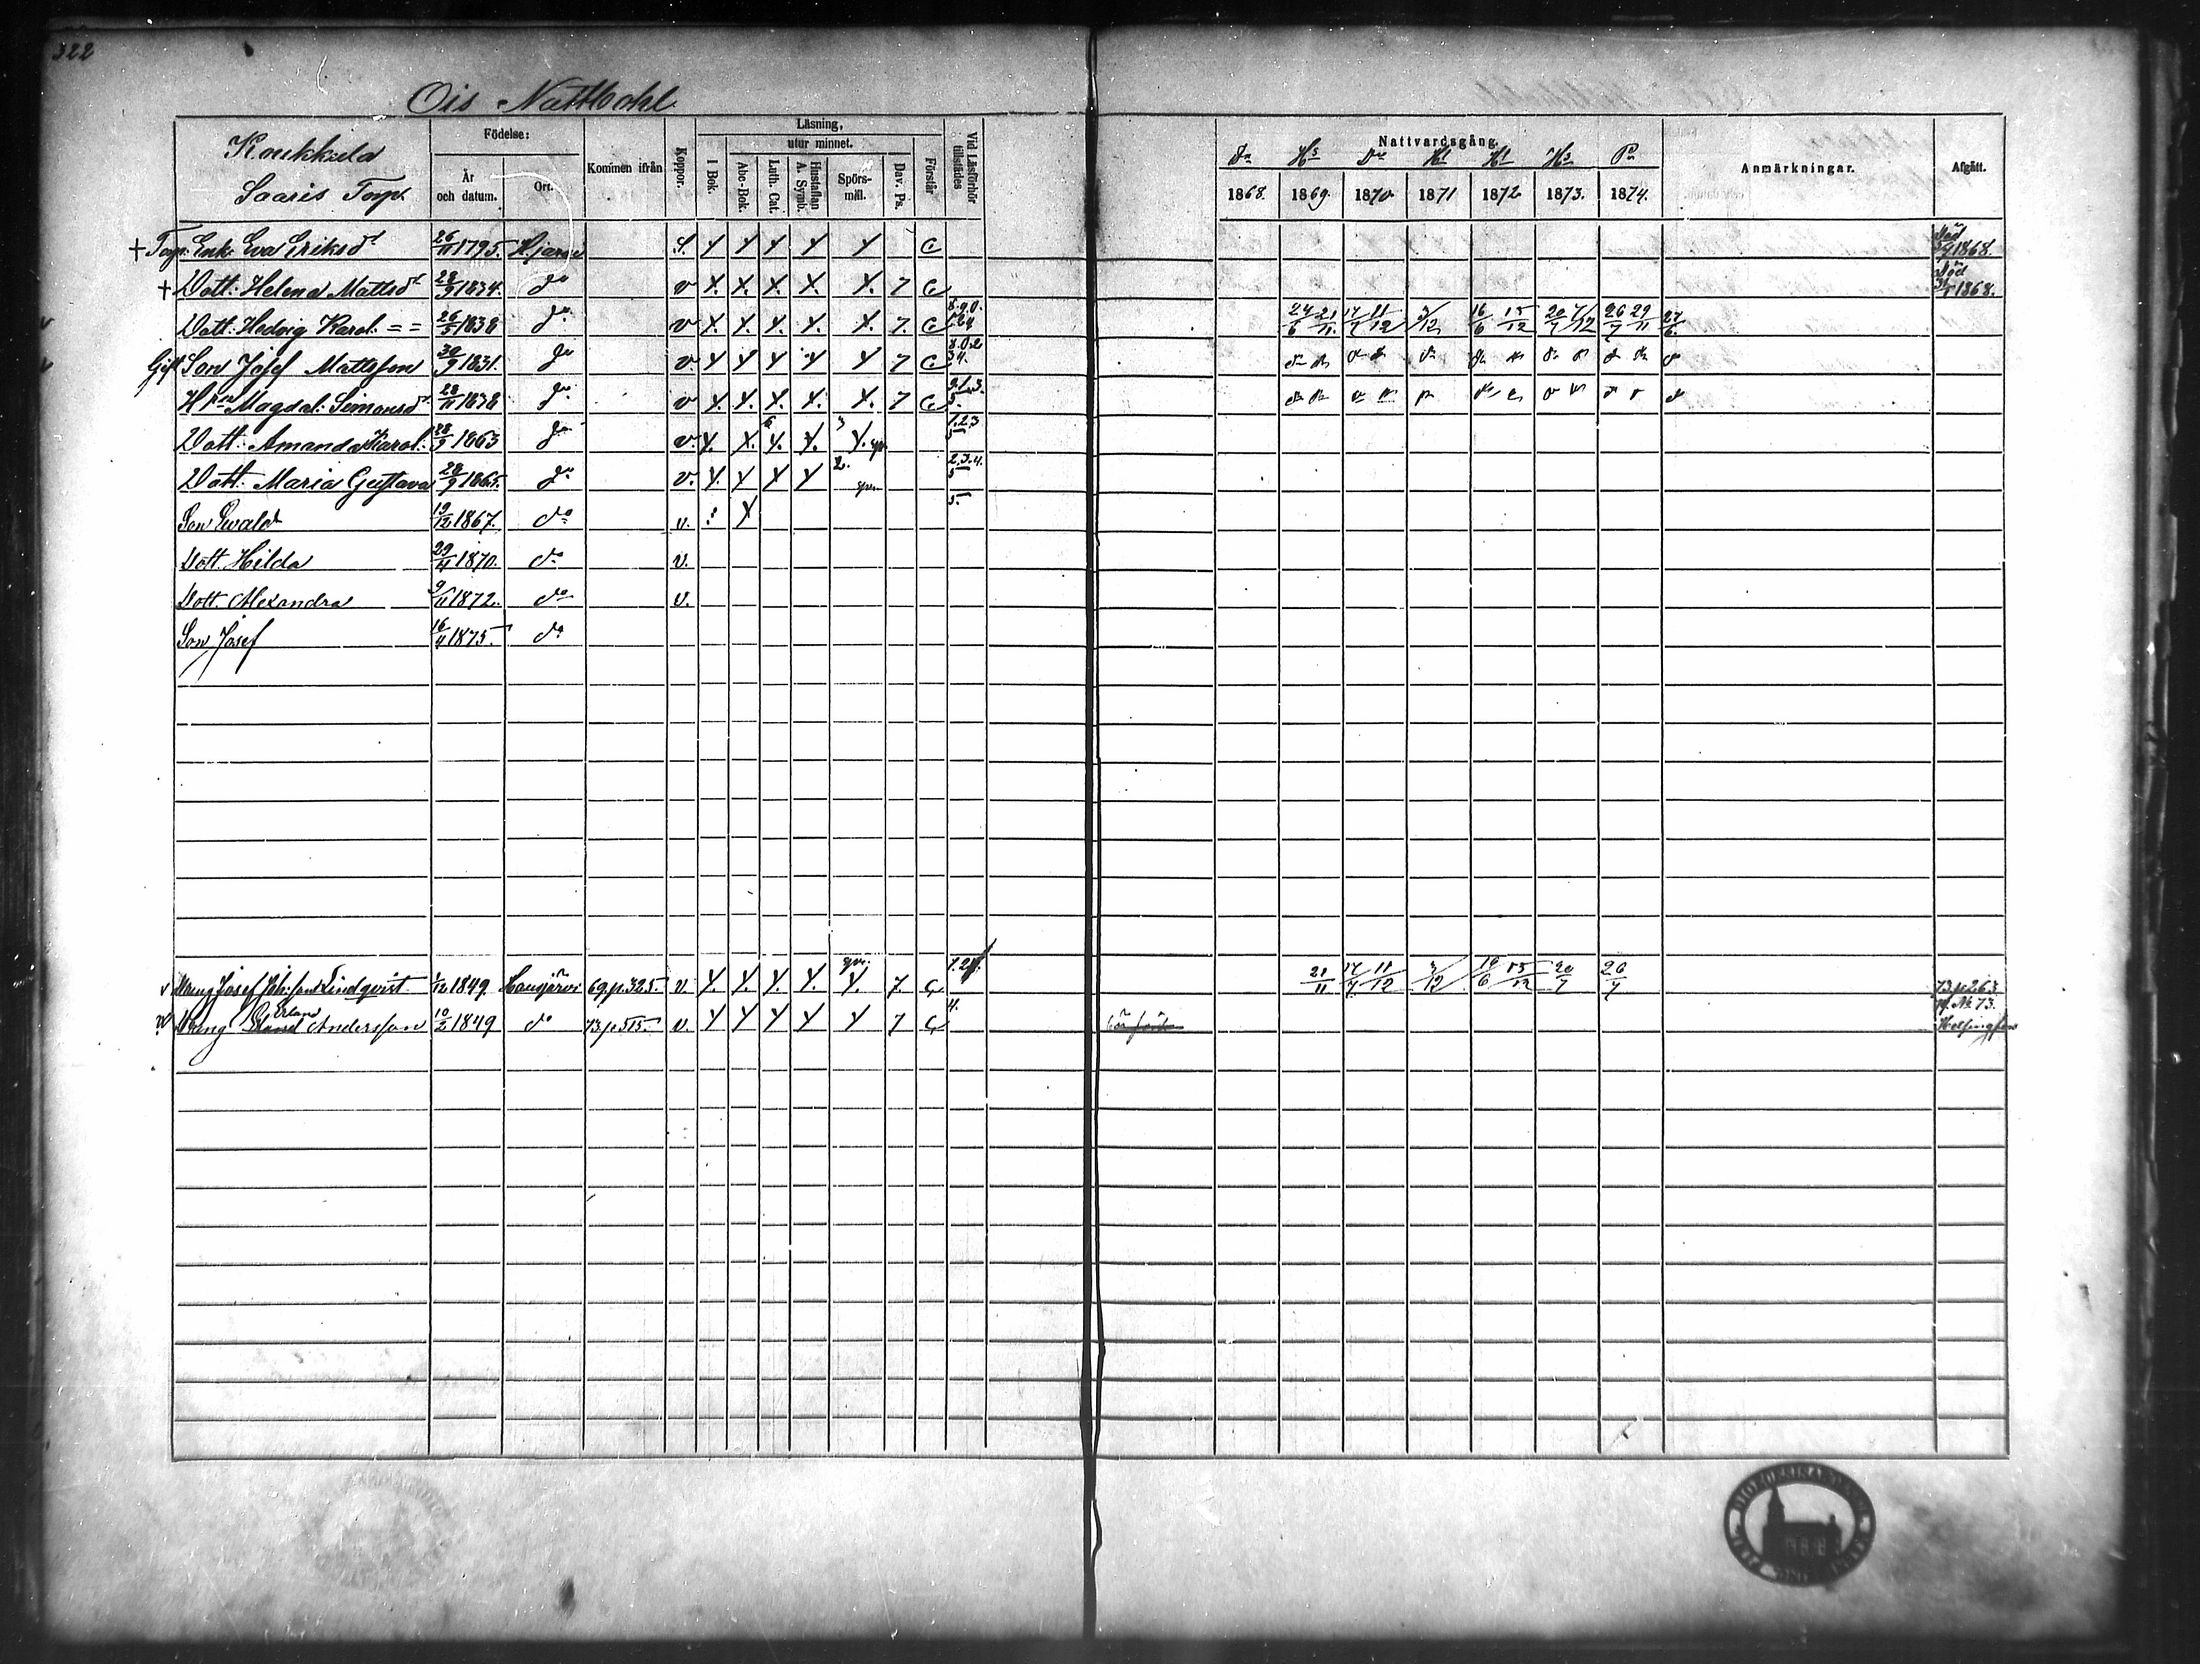 322
Ois Nattbohl
Koukkula
Saaris Torp.
Födelse:
År och datum.
Ort.
Kommen ifrån
Koppor.
Läsning,
I Bok.
utur minnet.
Abc-Bok.
Luth. Cat.
Hustaflan A. Symb.
Spörs-mål.
Dav. Ps.
Förstår
Vid Läsförhör tillstädes
Nattvardsgång.
1868. 1869. 1870 1871 1872 1873. 1874.
Anmärkningar.
Afgått.
+ Torp. Enk. Eva Eriksdr 26/11 1795. S. C Död 1868.
+ Dott. Helena Mattsdr 28/9 1834. do v 7 C Död 1868.
Dott. Hedvig Karol. = = 26/5 1838 do v 7. C 24/6 21/11 17/7 11/12 3/12 16/6 15/12 20/7 7/12 26/7 29/11 27/6
Gift Son Josef Mattsson 30/9 1831. do v. 7 C
Hru Magdal. Simonsdr 28/11 1838 do v 7 C
Dott. Amanda Karol. 1863 do v. 1.2.3 5
Dott. Maria Gustava 28/9 1865. do v. 2. 2.3.4. 5
Son Evald 19/12 1867. do v. 5.
Dott. Hilda 29/4 1870. do v.
Dott. Alexandra 9/11 1872. do v.
Son Josef 16/4 1875. do
v Dreng Josef Joh:son Lindqvist 1/12 1849. Hausjärvi 69.p.325. v. 7. C 21/11 17/7 11/12 3/12 16/6 15/12 20/7 26/7 73.p263
Dreng Erland Andersson 10/2 1849 do 73.p515. v. 7 C 4. No 73. Helsingfors